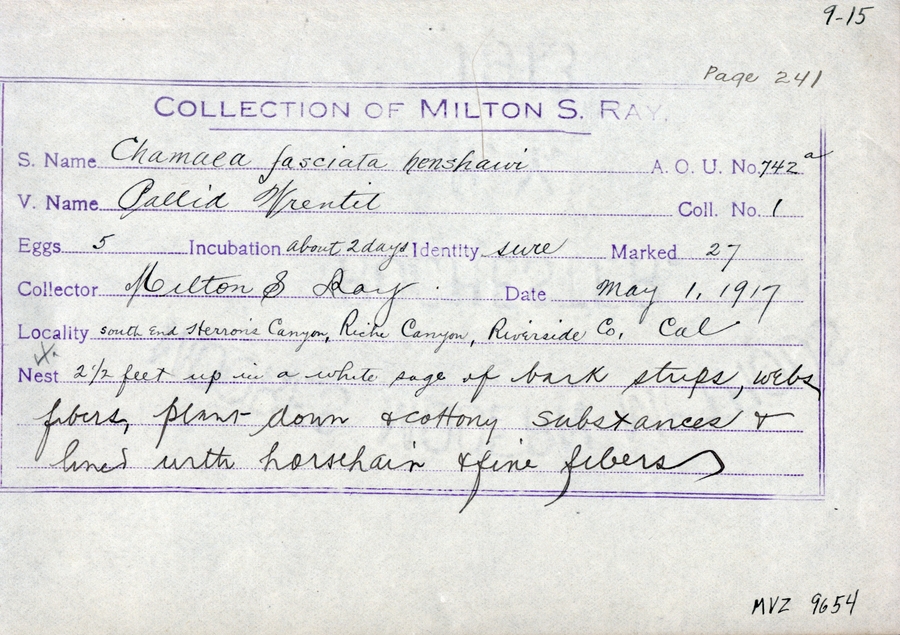 9-15
Page 241
COLLECTION OF MILTON S. RAY.
S. Name Chamaea fasciata henshawi A. O. U. No. 742a
V. Name Pallid Wrentit Coll. No. 1
Eggs 5 Incubation about 2 days Identity sure Marked 27
Collector Milton S Ray Date May 1, 1917
Locality South End Herrons Canyon, Riche Canyon, Riverside Co, Cal
Nest 2 1/2 feet up in a white sage of bark strips, webs
fibers, plant down & cottony substances &
lined with horsehair & fine fibers
MVZ 9654